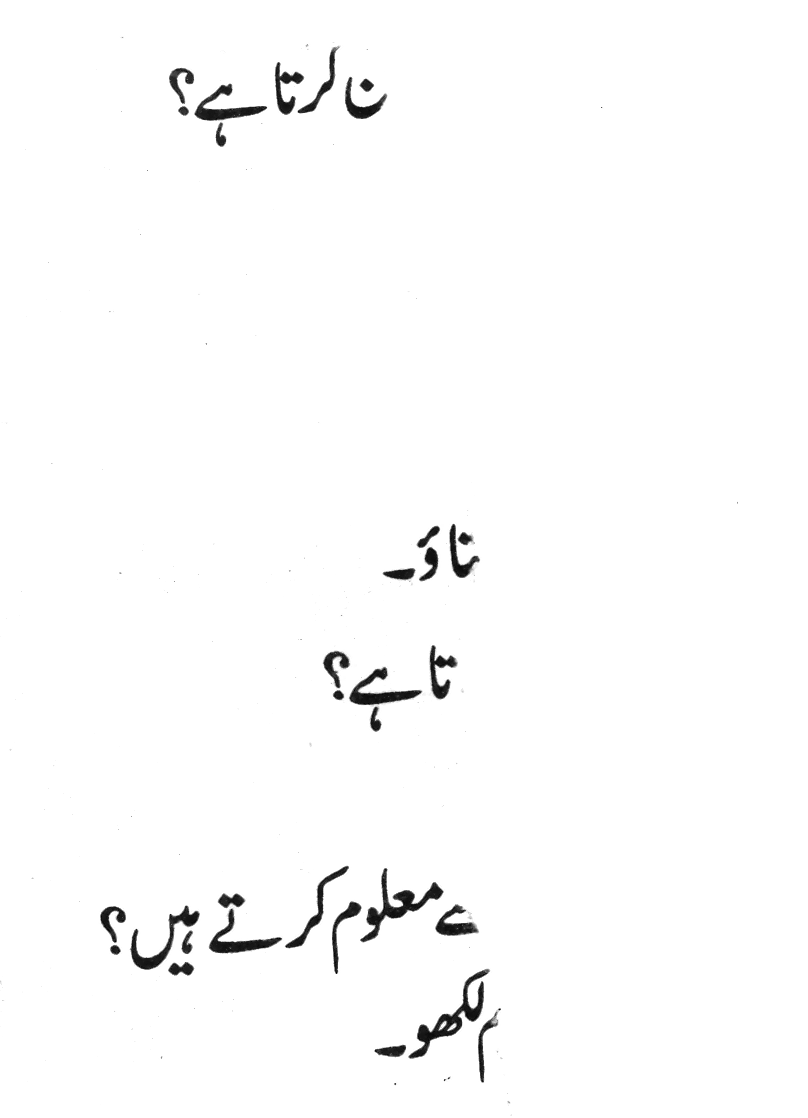 ن کرتا ہے؟
ناؤ۔
تا ہے؟
سے معلوم کرتے ہیں؟
م لکھو۔